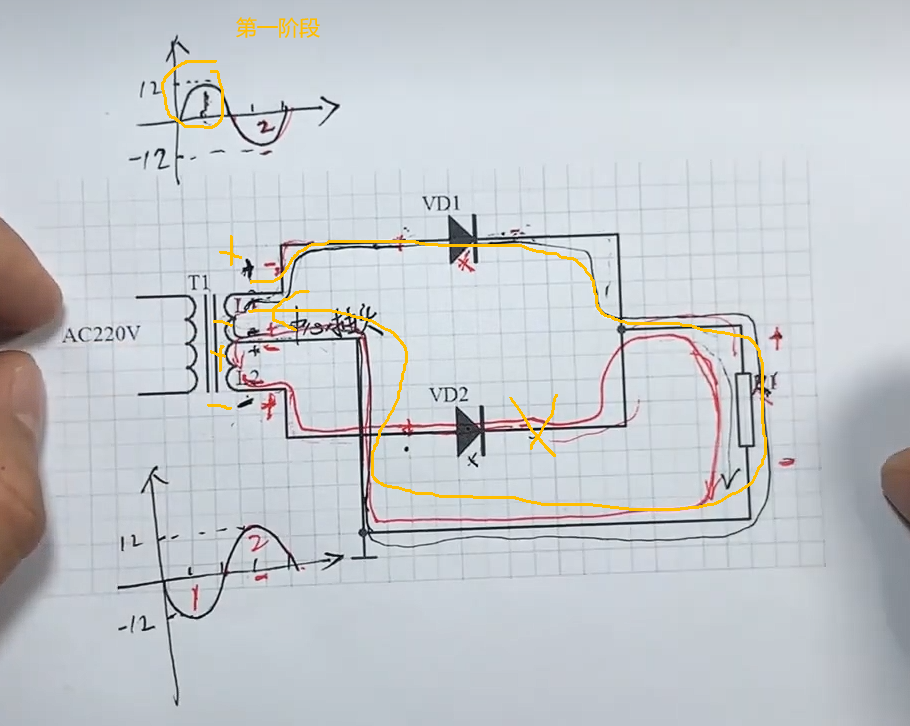 第一阶段
12
1
2
-12
VD1
+
+ -
T1
L1
AC220V
+
中心抽头
+ -
+
+
L2
-
- +
VD2
-
12
2
1
-12